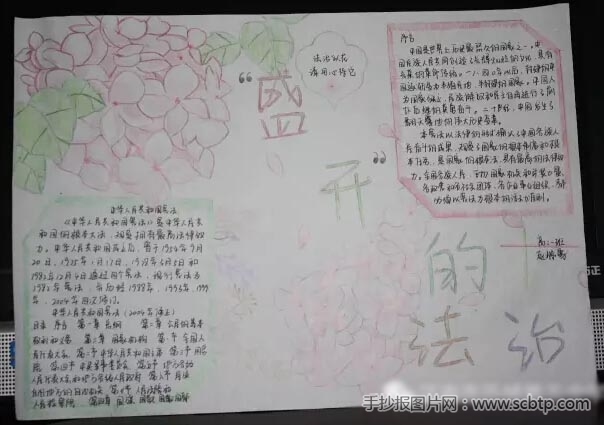 "盛开"的法治
序言
中国是世界上历史最悠久的国家之一。中
国各族人民共同创造了光辉灿烂的文化,具有
光荣的革命传统。一八四〇年以后,封建的中
国逐渐变为半殖民地、半封建的国家。中国人
为国家独立、民族解放和民主自由进行了前
仆后继的英勇奋斗。二十世纪,中国发生了
翻天覆地的伟大历史变革。
本宪法以法律的形式确认了中国各族人
民奋斗的成果,规定了国家的根本制度和根
本任务,是国家的根本法,具有最高的法律效
力。全国各族人民、一切国家机关和武装力量、
各政党和各社会团体、各企业事业组织,都
必须以宪法为根本的活动准则。
中华人民共和国宪法
《中华人民共和国宪法》是中华人民共
和国的根本大法,规定拥有最高法律效
力。中华人民共和国成立后,曾于1954年9月
20日、1975年1月17日、1978年3月5日和
1982年12月4日通过四个宪法,现行宪法为
1982年宪法,并历经1988年、1993年、1999
年、2004年四次修订。
中华人民共和国宪法(2004年修正)
目录 序言 第一章 总纲 第二章 公民的基本
权利和义务 第三章 国家机构 第一节 全国人
民代表大会 第二节 中华人民共和国主席 第三节 国务
院 第四节 中央军事委员会 第五节 地方各级
人民代表大会和地方各级人民政府 第六节 民族
自治地方的自治机关 第七节 人民法院和
人民检察院 第四章 国旗、国歌、国徽、首都
高一班
手抄报图片网-www.scbtp.com